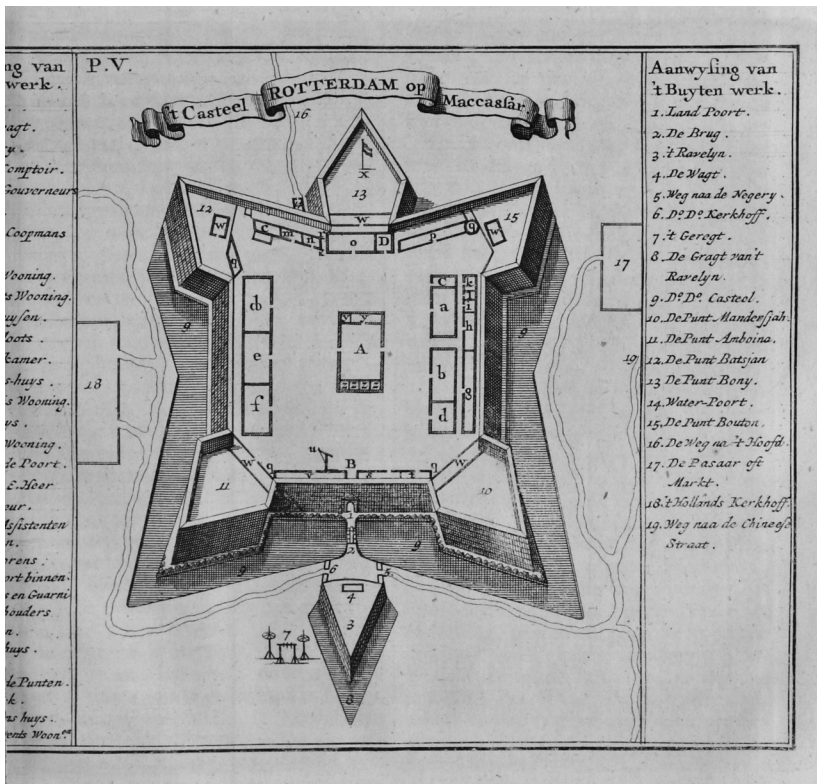 ng van
werk.
agt.
y.
omptoir.
Gouverneurs
Coopmans
Wooning.
s Wooning.
uyson.
loots.
kamer.
s-huys.
s Wooning.
ys.
Wooning.
de Poort.
E. Heer
eur.
dsistenten
n.
orens.
ort binnen.
s en Guarni
houders
n.
huys.
de Punten.
k.
ns huys.
P.V.
't Casteel ROTTERDAM op Maccassar
16
x
13
w
12 w
c m n o D p q
w 15
q
9
d
e
f
v y
A
c
a
b
d
k
i
h
g
9
17
19
18
u
B
w q
q w
11
10
1
2
9
9
6
5
4
3
7
8
Aanwysing van
't Buyten werk.
1. Land Poort.
2. De Brug.
3. 't Ravelyn.
4. De Wagt.
5. Weg naa de Negery.
6. Do. Do. Kerkhoff.
7. 't Geregt.
8. De Gragt van't
Ravelyn.
9. Do. Do. Casteel.
10. De Punt Manderssah.
11. De Punt Amboina.
12. De Punt Batsjan
13 De Punt Bony.
14. Water-Poort.
15. De Punt Bouton.
16. De Weg na 't Hoofd.
17. De Pasaar oft
Markt.
18. 't Hollands Kerkhoff.
19. Weg naa de Chineese
Straat.